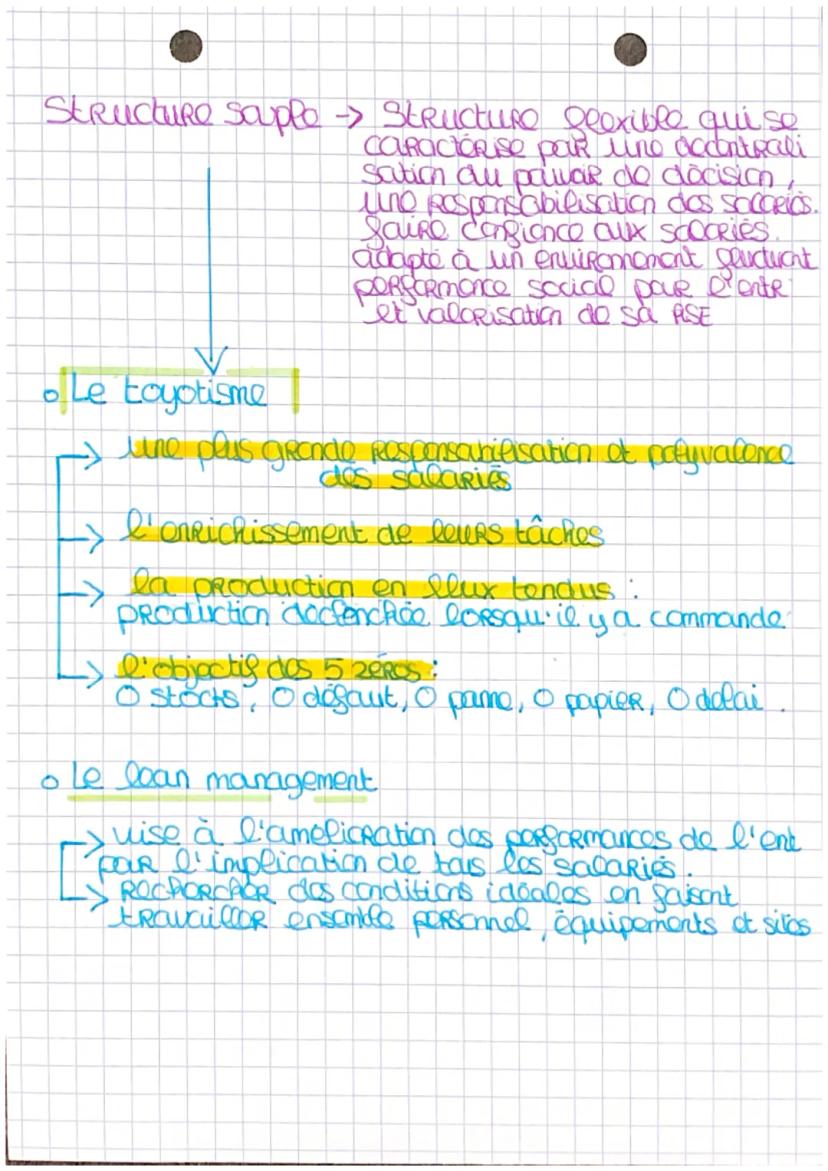 Structure souple → Structure flexible qui se
caractérise par une décentrali
sation du pouvoir de décision,
une responsabilisation des salariés.
faire confiance aux salariés.
adapté à un environnement fluctuant
performance social pour l'entr
et valorisation de sa RSE
o Le toyotisme
→ une plus grande responsabilisation et polyvalence
des salariés
→ l'enrichissement de leurs tâches
→ la production en flux tendus :
production déclenchée lorsqu'il y a commande
→ l'objectif des 5 zéros :
0 stocks, 0 défaut, 0 panne, 0 papier, 0 délai.
o Le lean management
→ vise à l'amélioration des performances de l'ent
par l'implication de tous les salariés.
→ Rechercher des conditions idéales en faisant
travailler ensemble personnel, équipements et sites